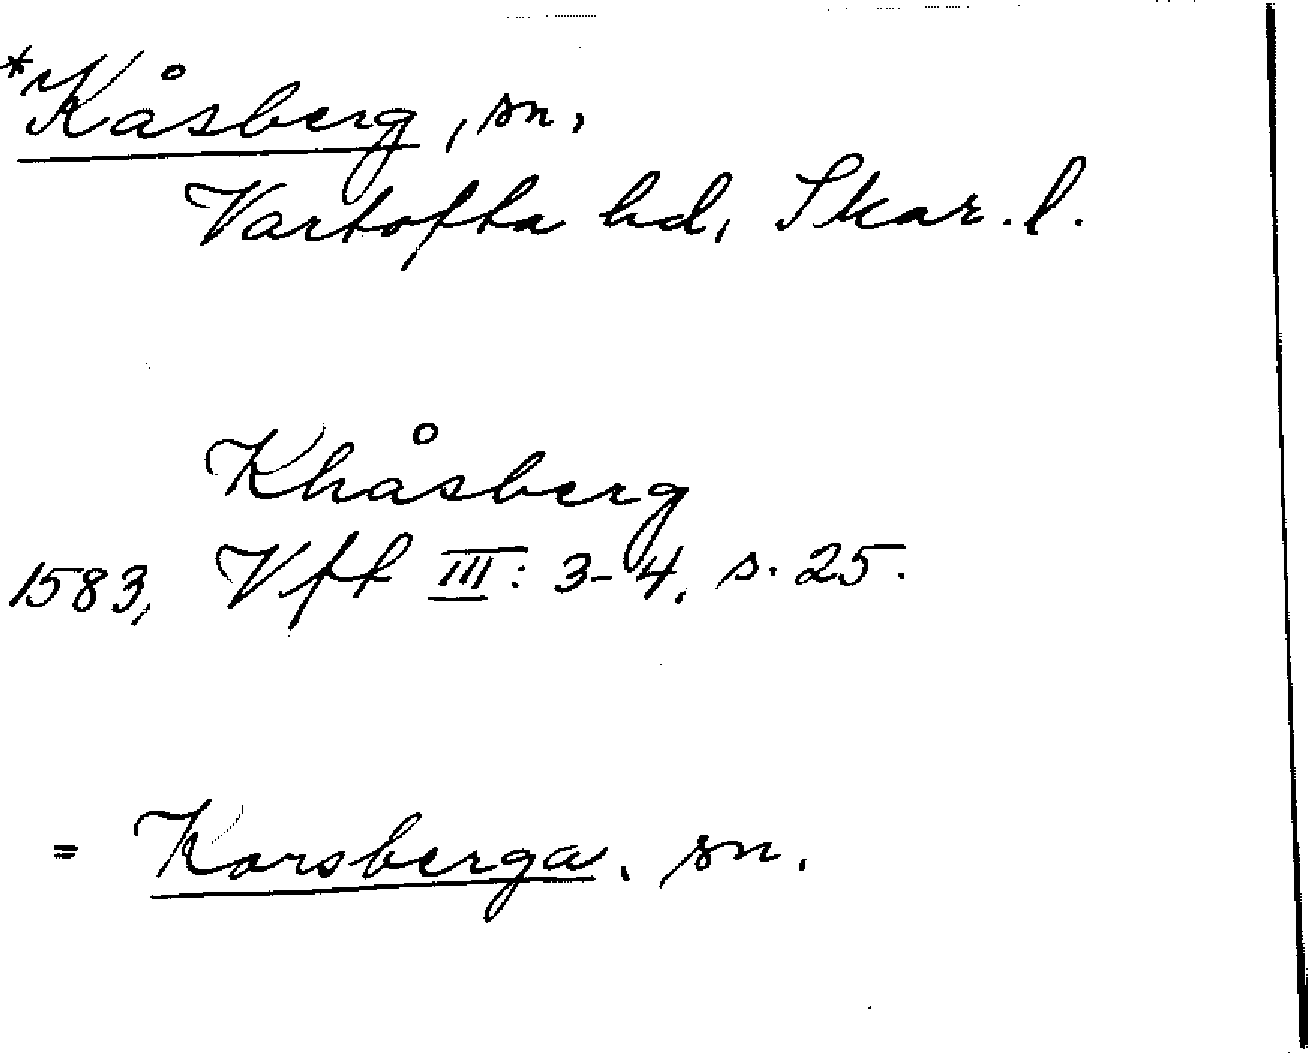 *Kåsberg, sn.
Vartofta hd, Skar. l.
Khåsberg
1583, Vft III: 3-4, s. 25.
= Korsberga. sn.